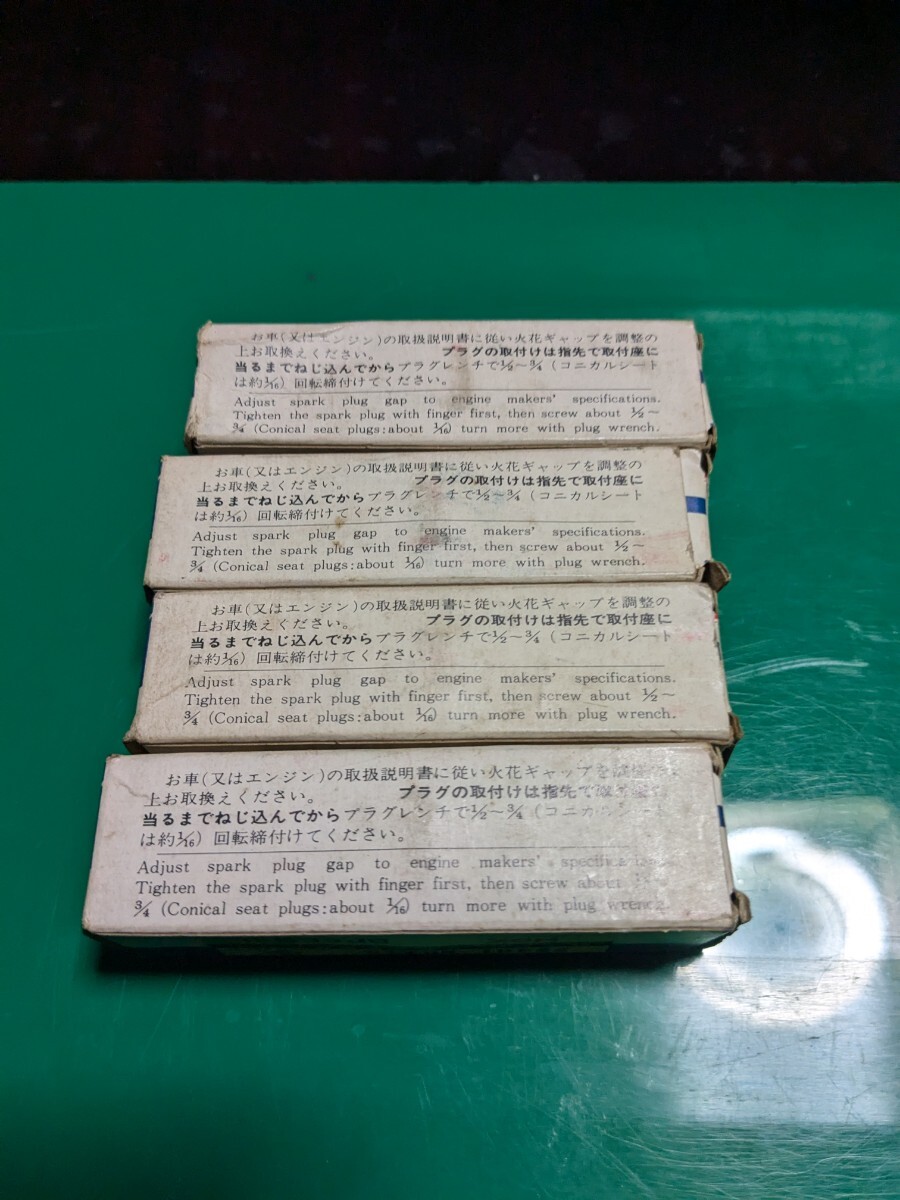 お車(又はエンジン)の取扱説明書に従い火花ギャップを調整の
上お取換えください。 プラグの取付けは指先で取付座に
当るまでねじ込んでからプラグレンチで½～¾(コニカルシート
は約1/16)回転締付けてください。
Adjust spark plug gap to engine makers' specifications.
Tighten the spark plug with finger first, then screw about ½～
¾ (Conical seat plugs:about 1/16) turn more with plug wrench.
お車(又はエンジン)の取扱説明書に従い火花ギャップを調整の
上お取換えください。 プラグの取付けは指先で取付座に
当るまでねじ込んでからプラグレンチで½～¾(コニカルシート
は約1/16)回転締付けてください。
Adjust spark plug gap to engine makers' specifications.
Tighten the spark plug with finger first, then screw about ½～
¾ (Conical seat plugs:about 1/16) turn more with plug wrench.
お車(又はエンジン)の取扱説明書に従い火花ギャップを調整の
上お取換えください。 プラグの取付けは指先で取付座に
当るまでねじ込んでからプラグレンチで½～¾(コニカルシート
は約1/16)回転締付けてください。
Adjust spark plug gap to engine makers' specifications.
Tighten the spark plug with finger first, then screw about ½～
¾ (Conical seat plugs:about 1/16) turn more with plug wrench.
お車(又はエンジン)の取扱説明書に従い火花ギャップを調整の
上お取換えください。 プラグの取付けは指先で取付座に
当るまでねじ込んでからプラグレンチで½～¾(コニカルシート
は約1/16)回転締付けてください。
Adjust spark plug gap to engine makers' specifications.
Tighten the spark plug with finger first, then screw about
¾ (Conical seat plugs:about 1/16) turn more with plug wrench.